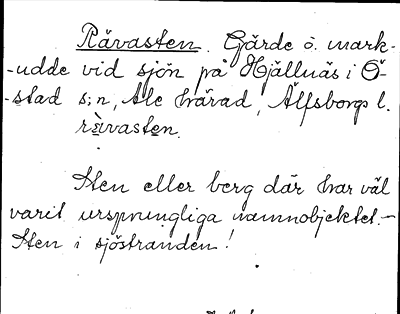 Rävasten. Gärde o. mark-
-udde vid sjön på Hjällnäs i Ö-
-stad s:n, Ale härad, Älfsborgs l.
rä̀vasten.
Sten eller berg där har väl
varit ursprungliga namnobjektet.-
Sten i sjöstranden!